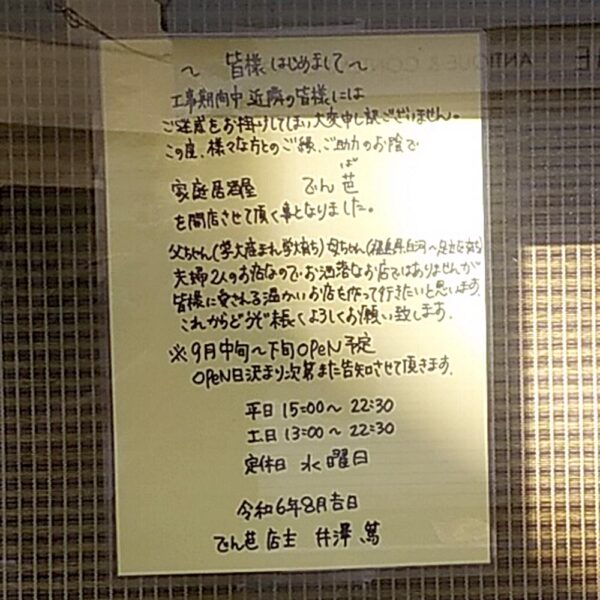 ～ 皆様 はじめまして ～
工事期間中 近隣の皆様には
ご迷惑をお掛けしてしまい大変申し訳ございません。
この度、様々な方とのご縁、ご助力のお陰で
ば
家庭居酒屋 でん芭
を開店させて頂く事となりました。
父ちゃん(学大産まれ学大育ち) 母ちゃん(福島県白河〜足立区育ち)
夫婦2人のお店なのでお洒落なお店ではありませんが
皆様に愛される温かいお店を作って行きたいと思います。
これからどうぞ長くよろしくお願い致します。
※9月中旬～下旬OPEN予定
OPEN日決まり次第また告知させて頂きます。
平日 15:00～ 22:30
土日 13:00～ 22:30
定休日 水曜日
令和6年8月吉日
でん芭 店主 井澤 篤
ANTIQUE & CON